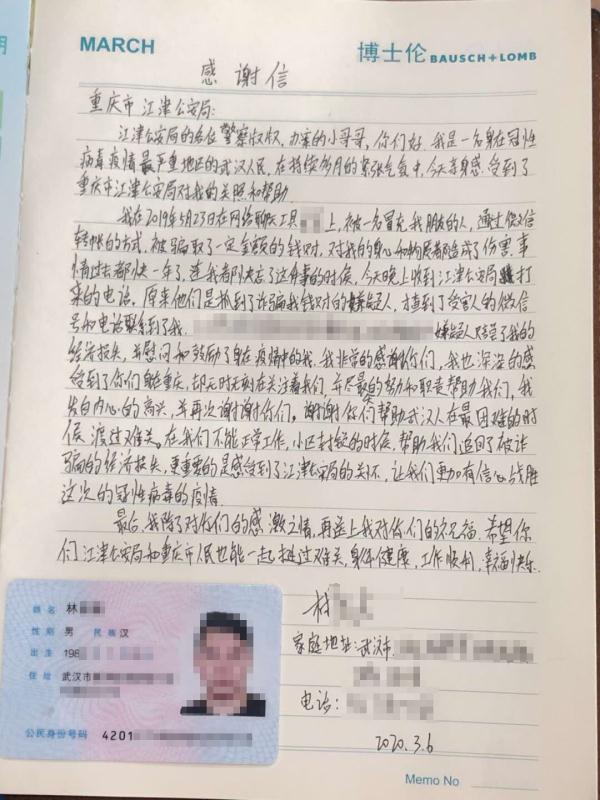 MARCH
博士伦 BAUSCH+LOMB
感谢信
重庆市江津公安局:
江津公安局的各位警察叔叔,办案的小哥哥,你们好.我是一名身在冠性
病毒疫情最严重地区的武汉人民,在持续多月的紧张气氛中,今天亲身感受到了
重庆市江津公安局对我的关照和帮助.
我在2019年5月23日在网络聊天工具 上,被一名冒充我朋友的人,通过微信
转帐的方式,被骗取了一定金额的钱财,对我的身心和物质都造成了伤害.事
情过去都快一年了,连我都快忘了这件事的时候,今天晚上收到江津公安局打
来的电话.原来他们是抓到了诈骗我钱财的嫌疑人,才查到了受害人的微信
号和电话联系到了我. 嫌疑人赔偿了我的
经济损失,并慰问和鼓励了身在疫情中的我.我非常的感谢你们,我也深深的感
受到了你们身在重庆,却无时无刻在关注着我们,并尽最大的努力和职责帮助我们,我
发自内心的高兴,并再次谢谢你们.谢谢你们帮助武汉人在最困难的时
候,渡过难关.在我们不能正常工作,小区封锁的时候,帮助我们追回了被诈
骗的经济损失,更重要的是感受到了江津公安局的关怀,让我们更加有信心战胜
这次的冠性病毒的疫情.
最后,我除了对你们的感激之情,再送上我对你们的祝福.希望你
们江津公安局和重庆市人民也能一起挺过难关,身体健康,工作顺利,幸福快乐.
林
家庭地址:武汉市
电话:
2020.3.6
姓名 林
性别 男 民族 汉
出生 198
住址 武汉市
公民身份号码 4201
Memo No